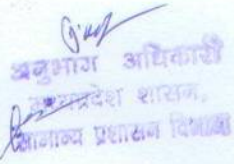 अनुभाग अधिकारी
मध्यप्रदेश शासन,
सामान्य प्रशासन विभाग